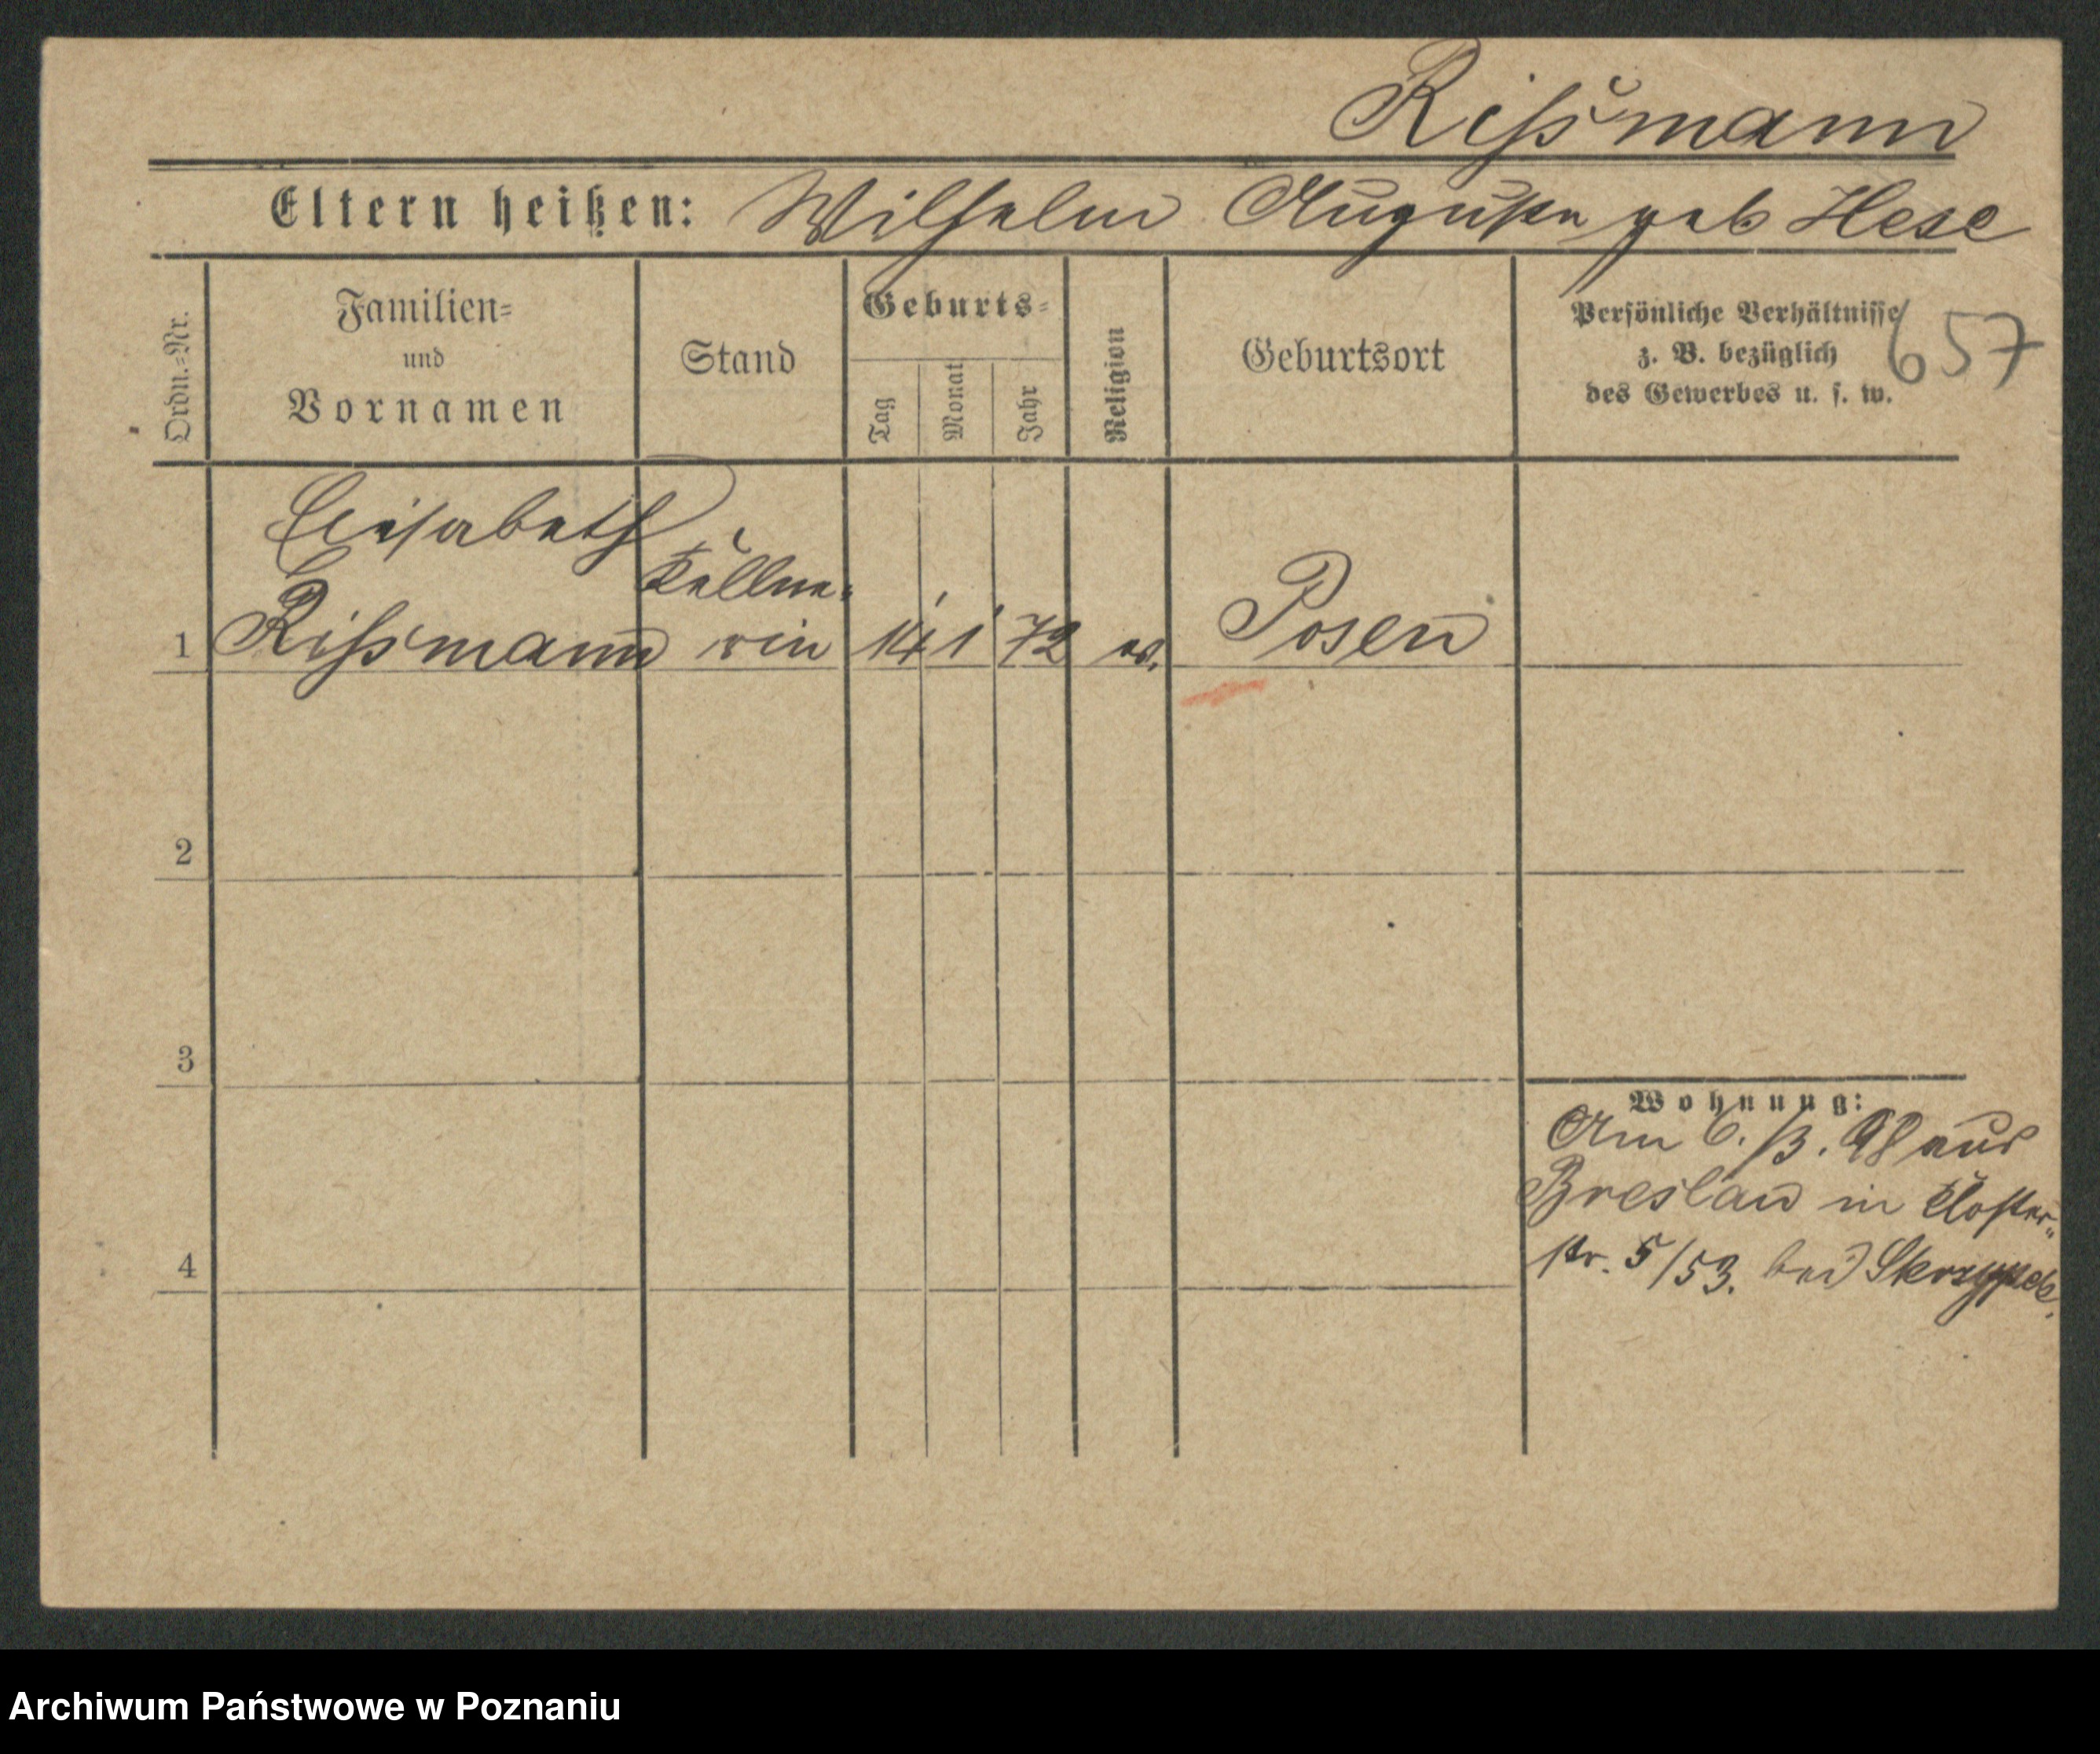 Rissmann
Eltern heißen: Wilhelm Auguste geb Hese
Ordn.=Nr.
Familien=
und
Vornamen
Stand
Geburts=
Tag
Monat
Jahr
Religion
Geburtsort
Persönliche Verhältnisse
z. B. bezüglich
des Gewerbes u. s. w.
657
Elisabeth
Kellne=
1 Rissmann rin 14 1 72 ev. Posen
2
3
Wohnung:
Am 6. /3. 98 aus
Breslau in Kloster=
4
str. 5/53. bei Skrzypek.
Archiwum Państwowe w Poznaniu